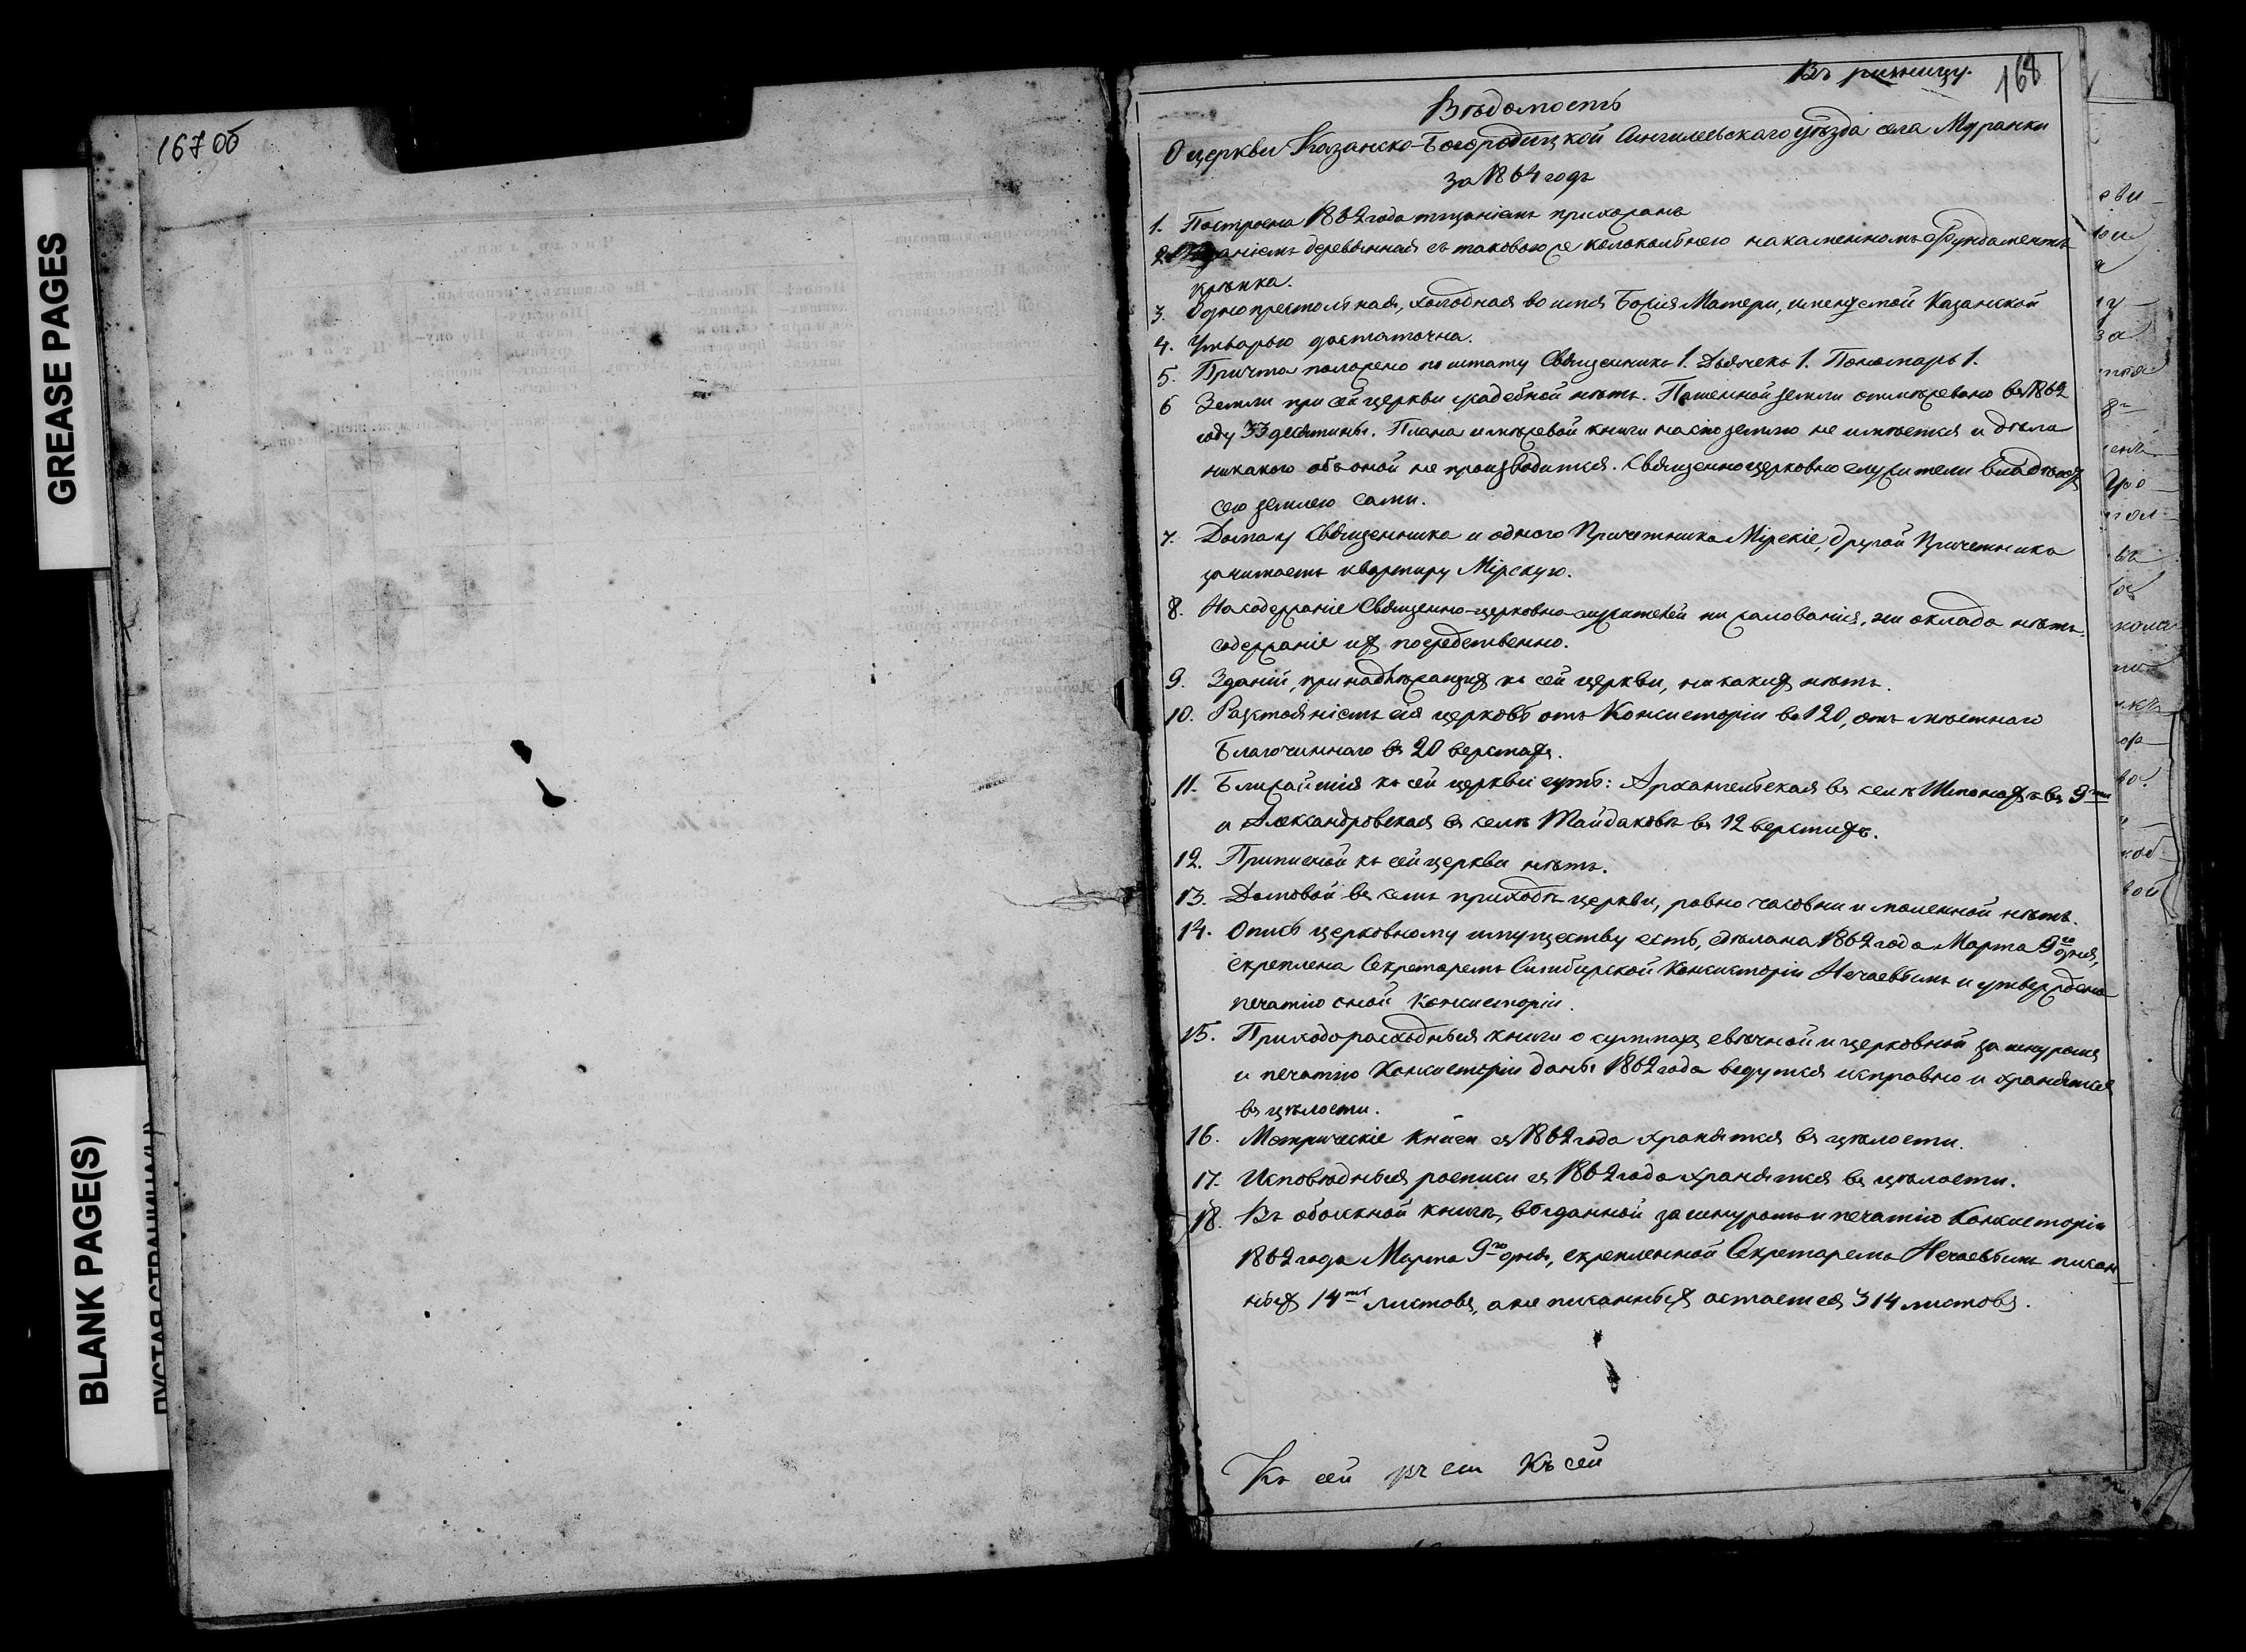 167 об
GREASE PAGES
BLANK PAGE(S)
ПУСТАЯ СТРАНИЦА(Ы)
Въ ризницу.
168
Вѣдомость
О церкви Казанско-Богородицкой Сингилеевскаго уѣзда села Муранки
за 1864 годъ
1. Построена 1862 года тщаніемъ прихожанъ
2. Зданіемъ деревянная съ таковою же колокольнею на каменномъ фундаментѣ
крѣпка.
3. Однопрестольная, холодная во имя Божія Матери, именуемой Казанской
4. Утварью достаточна.
5. Причта положено по штату Священникъ 1. Дьячекъ 1. Пономарь 1.
6 Земли при сей церкви усадебной нѣтъ. Пашенной земли отмѣжевано въ 1862
году 33 десятины. Плана и межевой книги на сію землю не имѣется и дѣла
никакого объ оной не производится. Священноцерковнослужители владѣютъ
сею землею сами.
7. Дома у Священника и одного Причетника Мірскіе, другой Причетникъ
занимаетъ квартиру Мірскую.
8. На содержаніе Священно-церковно-служителей ни жалованія, ни оклада нѣтъ.
содержаніе ихъ посредственно.
9. Зданій, принадлежащихъ къ сей церкви, никакихъ нѣтъ.
10. Разстояніемъ сія церковь отъ Консисторіи въ 120, отъ мѣстнаго
Благочиннаго въ 20 верстахъ.
11. Ближайшія къ сей церкви суть: Архангельская въ селѣ Шигонахъ въ 9ти
и Александровская въ селѣ Тайдаковѣ въ 12 верстахъ.
12. Приписной къ сей церкви нѣтъ.
13. Домовой въ семъ приходѣ церкви, равно часовни и моленной нѣтъ.
14. Опись церковному имуществу есть, сдѣлана 1862 года Марта 9го дня,
скреплена Секретаремъ Симбирской Консисторіи Нечаевымъ и утверждена
печатію оной Консисторіи.
15. Приходорасходныя книги о суммахъ свѣчной и церковной за шнуромъ
и печатію Консисторіи даны 1862 года ведутся исправно и хранятся
въ цѣлости.
16. Метрическіе книги съ 1862 года хранятся въ цѣлости.
17. Исповѣдныя росписи съ 1862 года хранятся въ цѣлости.
18. Въ обыскной книгѣ, выданной за шнуромъ и печатію Консисторіи
1862 года Марта 9го дня, скрепленной Секретаремъ Нечаевымъ писан
ныхъ 14ть листовъ, а не писанныхъ остается 314 листовъ.
Къ сей къ сей Къ сей